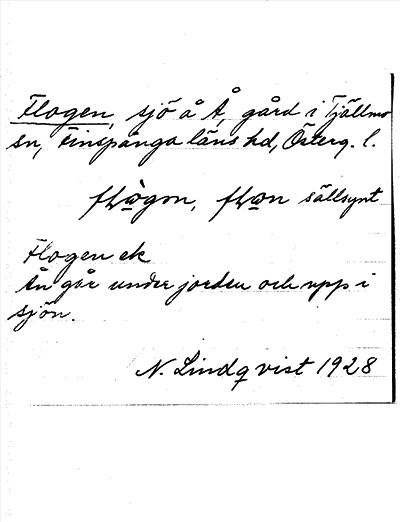 Flogen, sjö å Å, gård i Tjällmo
sn, Finspånga läns hd, Österg. l.
sällsynt
Flogen ek
Ån går under jorden och upp i
sjön.
N. Lindqvist 1928